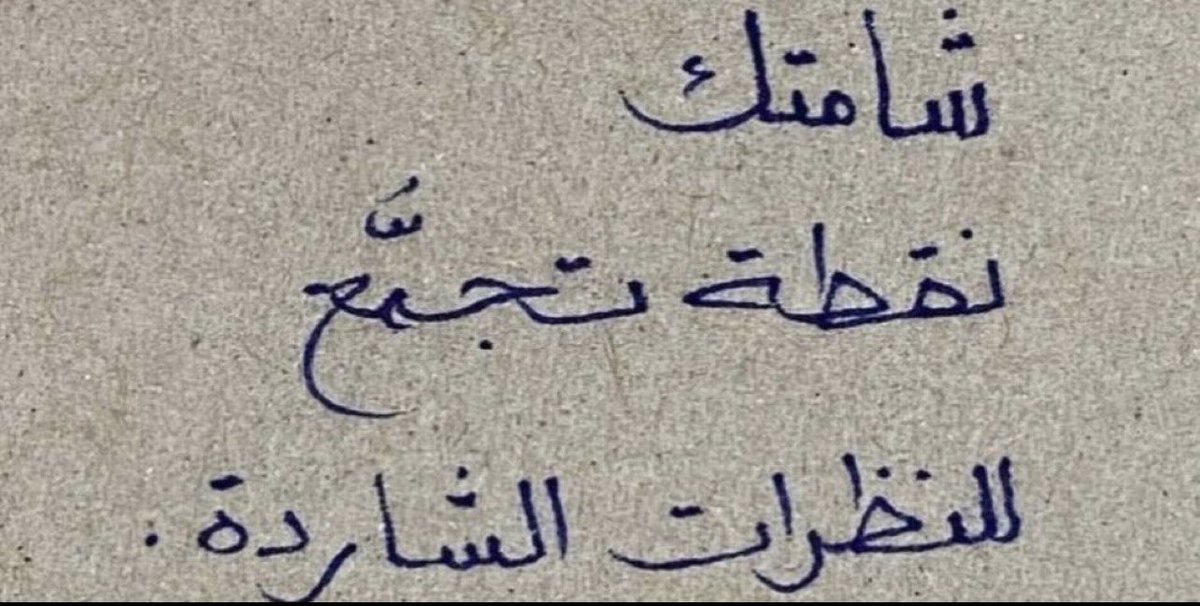 شامتك
نقطة تجمُّع
للنظرات الشاردة.